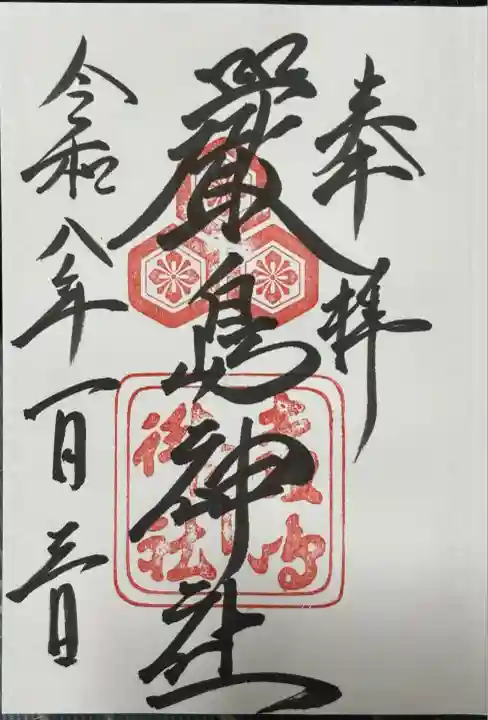 奉拝
嚴島神社
令和八年一月三日